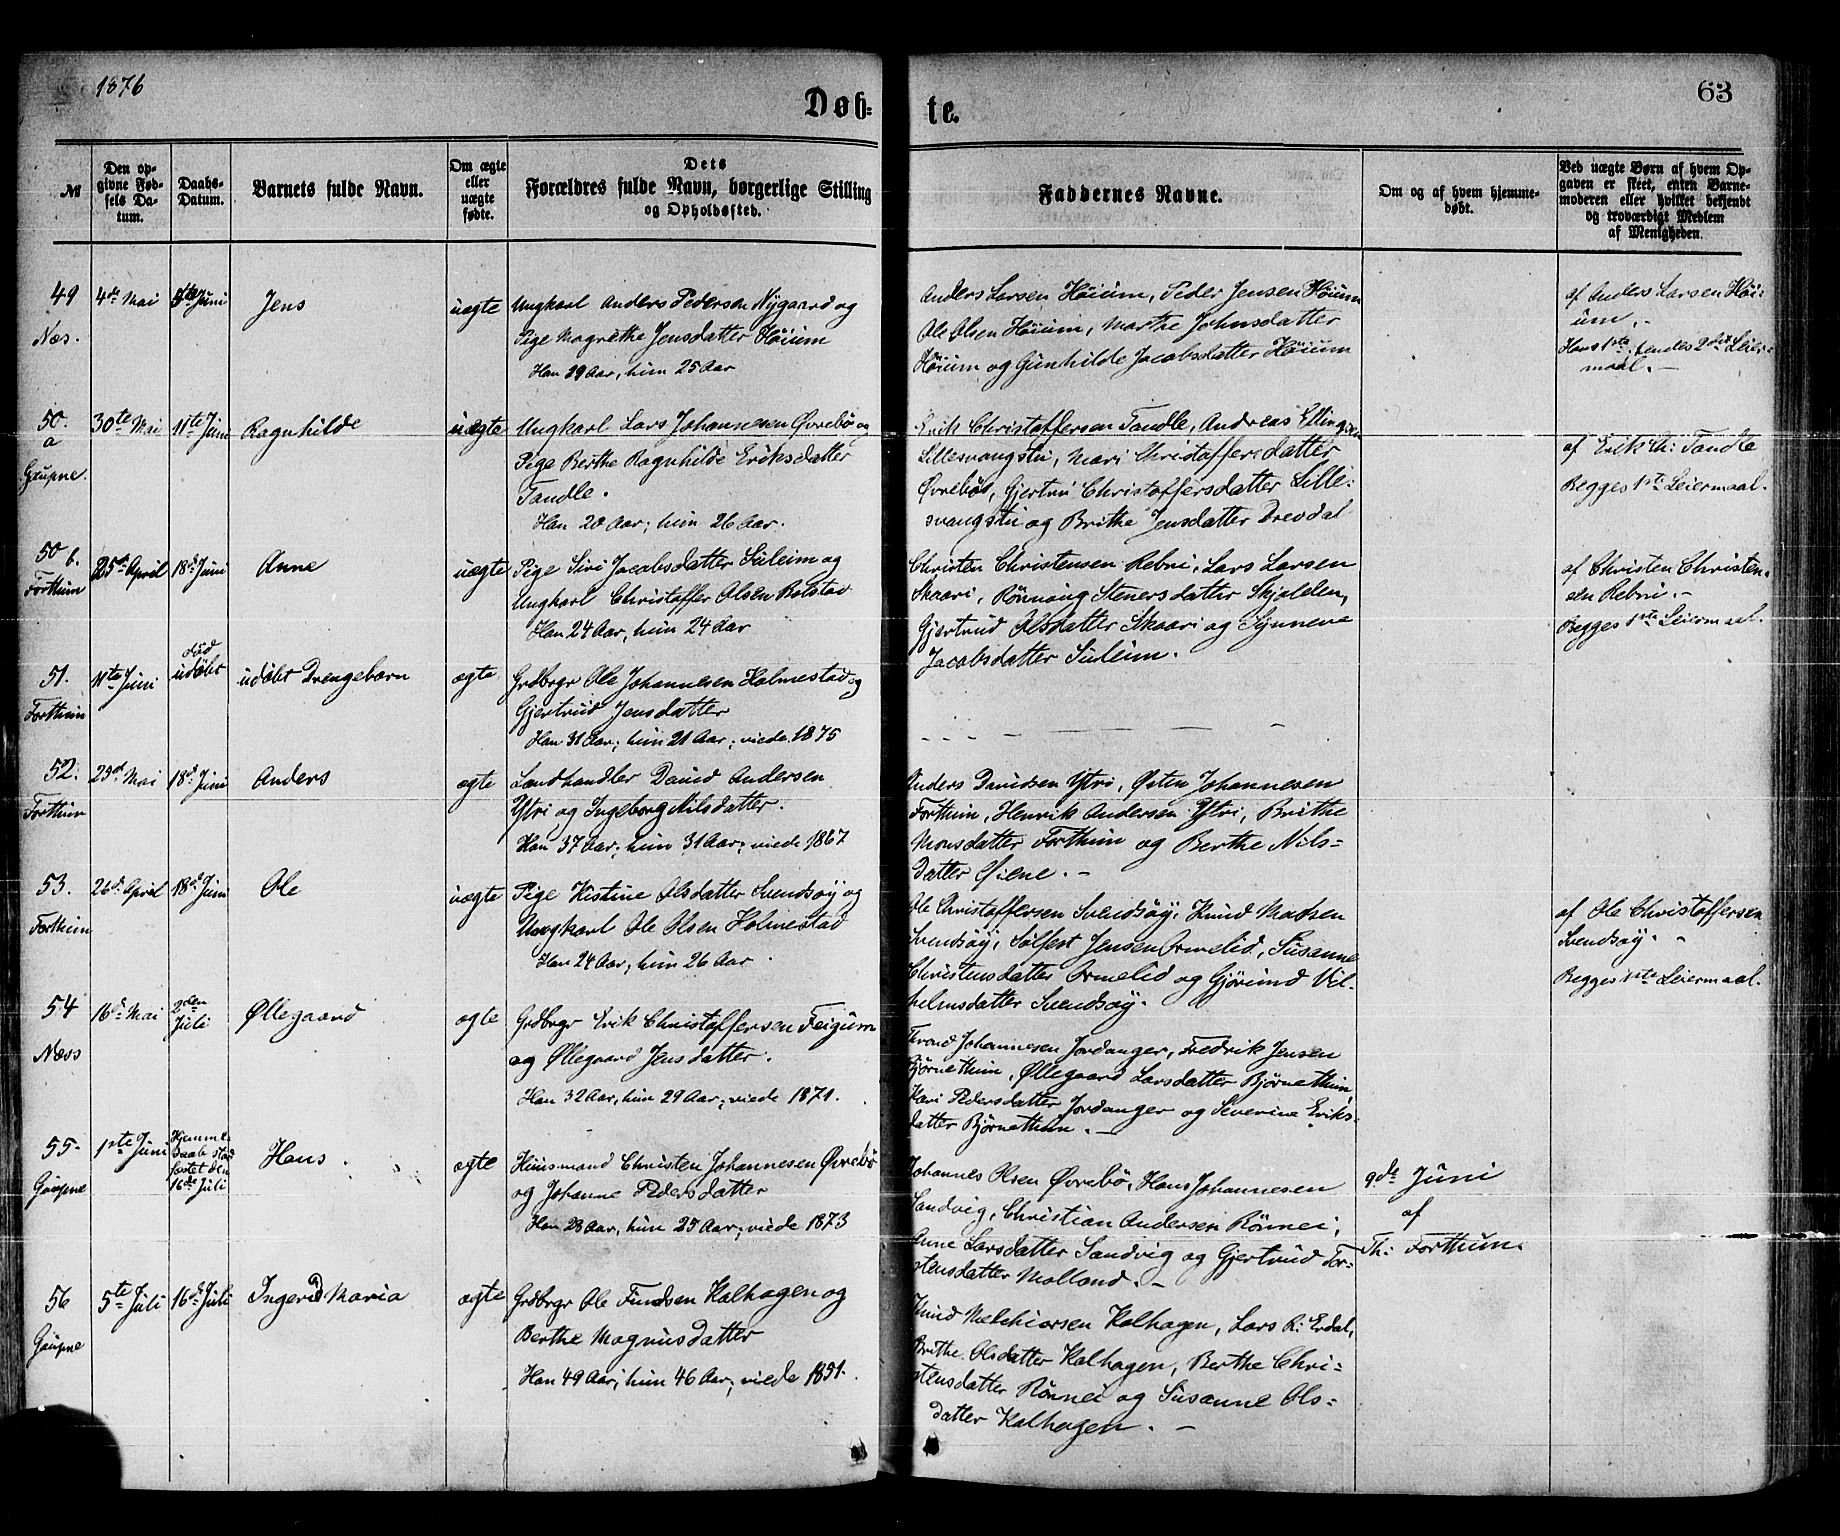 1876
63
Døb-
te.
№
Den op-
givne Fød-
sels Da-
tum.
Daabs-
Datum.
Barnets fulde Navn.
Om ægte
eller
uægte
fødte.
Dets
Forældres fulde Navn, borgerlige Stilling
og Opholdssted.
Faddernes Navne.
Om og af hvem hjemme-
døbt.
Ved uægte Børn af hvem Op-
gaven er skeet, enten Barne-
moderen eller hvilket bekjendt
og troværdigt Medlem
af Menigheden.
49
Næs.
4de Mai
Juni
Jens
uægte
Ungkarl Anders Pedersen Nygaard og
Pige Magrethe Jensdatter Høium
Han 29 Aar, hun 25 Aar
Anders Larsen Høium, Peder Jensen Høium
Ole Olsen Høium, Marthe Johnsdatter
Høium og Gunhilde Jacobsdatter Høium
af Anders Larsen Høi-
um. -
Hans 1ste, hendes 2det Leier-
maal. -
50.
a
Gaupne.
30te Mai
11te Juni
Ragnhilde
uægte
Ungkarl Lars Johannesen Øvrebø og
Pige Berthe Ragnhilde Eriksdatter
Tandle.
Han 20 Aar; hun 26 Aar.
Erik Christoffersen Tandle, Andreas Ellingsen
Lillesvangstu, Mari Christoffersdatter
Øvrebø, Gjertru Christoffersdatter Lille-
svangstu og Brithe Jensdatter Drevdal
af Erik Ch: Tandle
Begges 1ste Leiermaal.
50 b.
Forthun
25de April
18de Juni
Anne
uægte
Pige Siri Jacobsdatter Suleim og
Ungkarl Christoffer Olsen Bolstad
Han 24 Aar, hun 24 Aar
Christen Christensen Rebni, Lars Larsen
Skaari, Rønnaug Stenersdatter Skjolden,
Gjertrud Olsdatter Skaari og Synneve
Jacobsdatter Suleim.
af Christen Christen-
sen Rebni. -
Begges 1ste Leiermaal.
51.
Forthun
11te Juni
død
udøbt
udøbt Drengebarn
ægte
Grdbrgr Ole Johannesen Holmestad og
Gjertrud Jensdatter
Han 31 Aar; hun 21 Aar; viede 1875
52.
Forthun
Mai
18de Juni
Anders
ægte
Landhandler David Andersen
Ytri og Ingeborg Nilsdatter.
Han 37 Aar; hun 31 Aar; viede 1867
Anders Davidsen Ytri, Østen Johannesen
Forthun, Henrik Andersen Ytri, Brithe
Monsdatter Forthun og Berthe Nils-
datter Øiene. -
53.
Forthun
26de April
18de Juni
Ole
uægte
Pige Kistine Olsdatter Svendsøy og
Ungkarl Ole Olsen Holmestad
Han 24 Aar; hun 26 Aar.
Ole Christoffersen Svendsøy, Knud Madsen
Svendsøy, Sølfest Jensen Ormelid, Susanne
Christensdatter Ormelid og Gjørund Vil-
helmsdatter Svendsøy.
af Ole Christoffersen
Svendsøy. -
Begges 1ste Leiermaal.
54
Næss
16de Mai
2den
Juli
Øllegaard
ægte
Grdbrgr Erik Christoffersen Feigum
og Øllegaard Jensdatter.
Han 32 Aar, hun 29 Aar; viede 1871.
Thrond Johannesen Jordanger, Fredrik Jensen
Bjørnethun, Øllegaard Larsdatter Bjørnethun,
Kari Pedersdatter Jordanger og Severine Eriks-
datter Bjørnethun. -
55.
Gaupne
1ste Juni
Hjemme-
daab stad-
fæstet den
16de Juli
Hans
ægte
Huusmand Christen Johannesen Øvrebø
og Johanne Pedersdatter
Han 28 Aar, hun 25 Aar; viede 1873
Johannes Olsen Øvrebø, Hans Johannesen
Sandvig, Christian Andersen Rønnei,
Anne Larsdatter Sandvig og Gjertrud Tor-
stensdatter Molland. -
9de Juni
af
Th: Forthun.
56
Gaupne
5te Juli
16de Juli
Ingerid Maria
ægte
Grdbrgr Ole Fundsen Kalhagen og
Berthe Magnusdatter
Han 49 Aar; hun 46 Aar; viede 1851.
Knud Melchiorsen Kalhagen, Lars R: Erdal,
Brithe Olsdatter Kalhagen, Berthe Chri-
stensdatter Rønnei og Susanne Ols-
datter Kalhagen. -